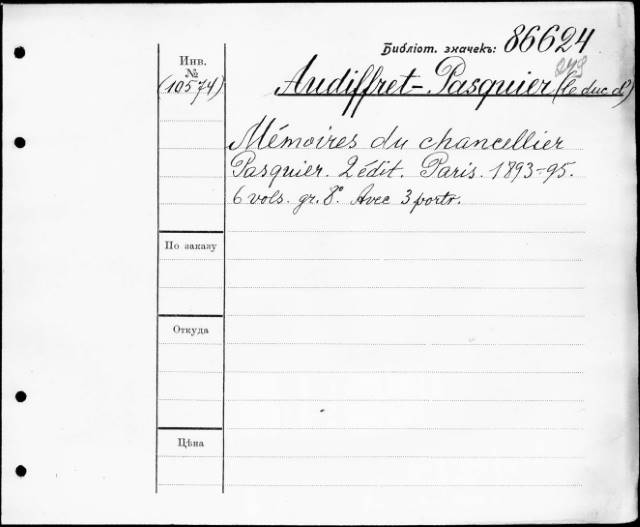 Библіот. значекъ: 86624
Инв.
№
(10574)
Audiffret-Pasquier (le duc d')
Mémoires du chancellier
Pasquier. 2 édit. Paris. 1893-95.
6 vols. gr. 8°. Avec 3 portr.
По заказу
Откуда
Цѣна